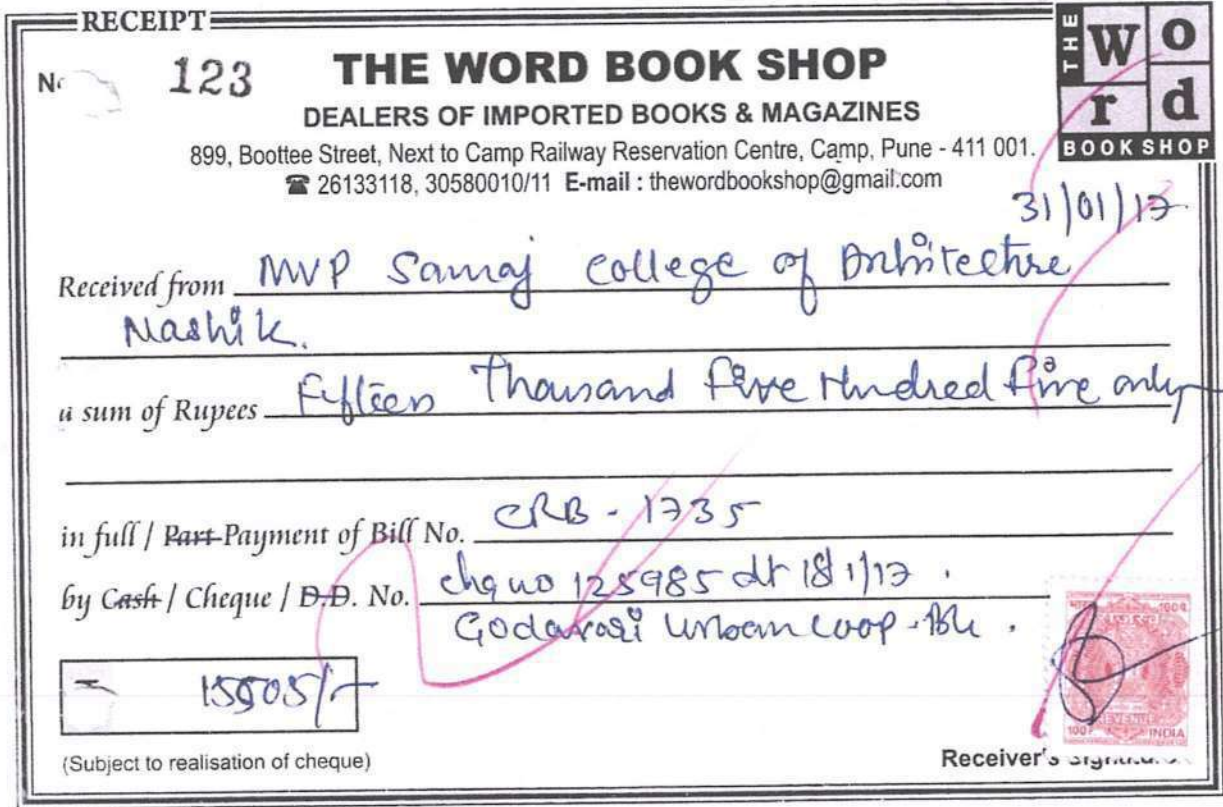 RECEIPT
No 123
THE WORD BOOK SHOP
THE Word BOOK SHOP
DEALERS OF IMPORTED BOOKS & MAGAZINES
899, Boottee Street, Next to Camp Railway Reservation Centre, Camp, Pune - 411 001.
☎ 26133118, 30580010/11 E-mail : thewordbookshop@gmail.com
31/01/17
Received from MVP Samaj College of Architecture
Nashik.
a sum of Rupees Fifteen Thousand Five Hundred Five only
in full / Part Payment of Bill No. CRB - 1735
by Cash / Cheque / D.D. No. chq no 125985 dt 18/1/17.
Godavari Urban Coop. Bk.
15505/-
(Subject to realisation of cheque)
REVENUE
INDIA
Receiver's Signature